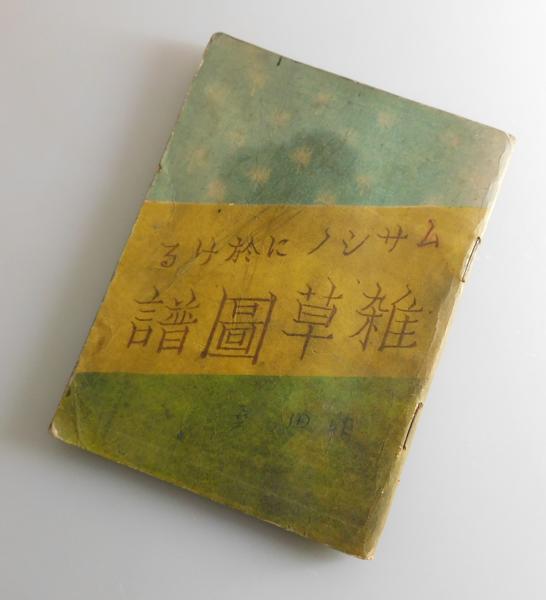 ムサシノに於ける
雑草圖譜
田